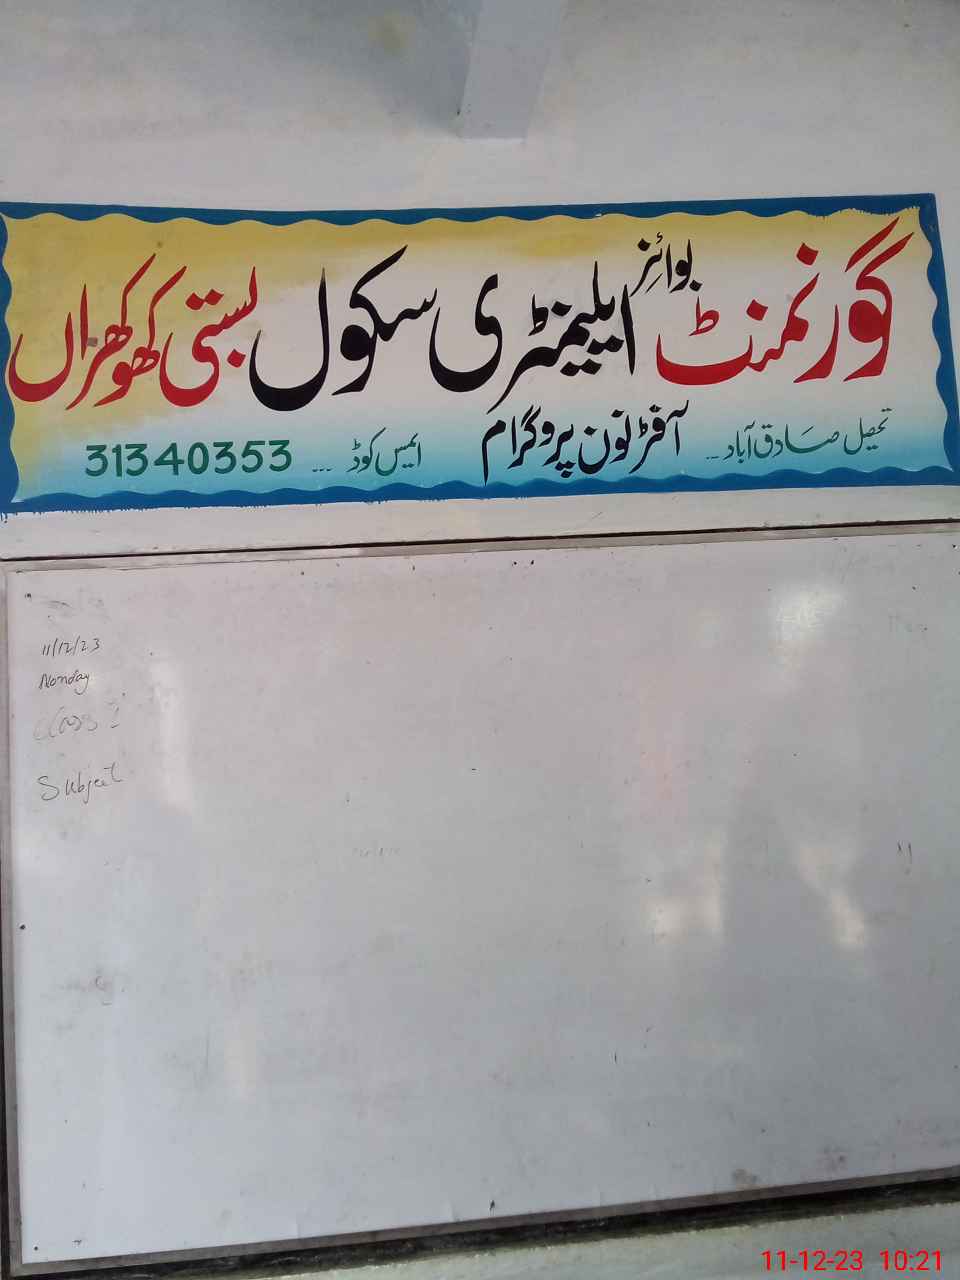 گورنمنٹ بوائز ایلیمنٹری سکول بستی کھوکھراں
تحصیل صادق آباد ... آفٹر نون پروگرام ایمس کوڈ ... 31340353
11/12/23
Monday
Class 2
Subject
11-12-23 10:21